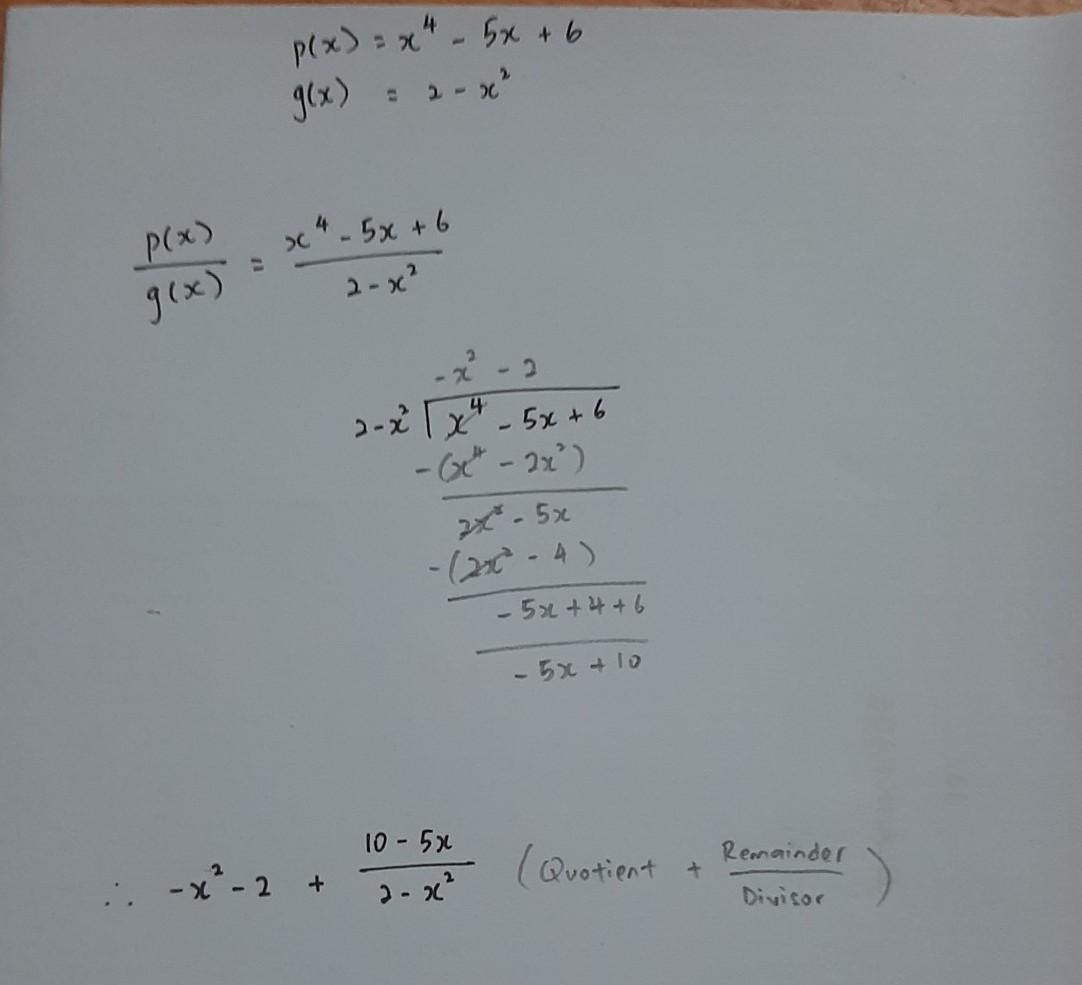 p(x) = x⁴ - 5x + 6
g(x) = 2 - x²
p(x)/g(x) = (x⁴ - 5x + 6)/(2 - x²)
-x² - 2
2-x² | x⁴ - 5x + 6
-(x⁴ - 2x²)
2x² - 5x
-(2x² - 4)
- 5x + 4 + 6
- 5x + 10
∴ -x² - 2 + (10 - 5x)/(2 - x²) (Quotient + Remainder/Divisor)